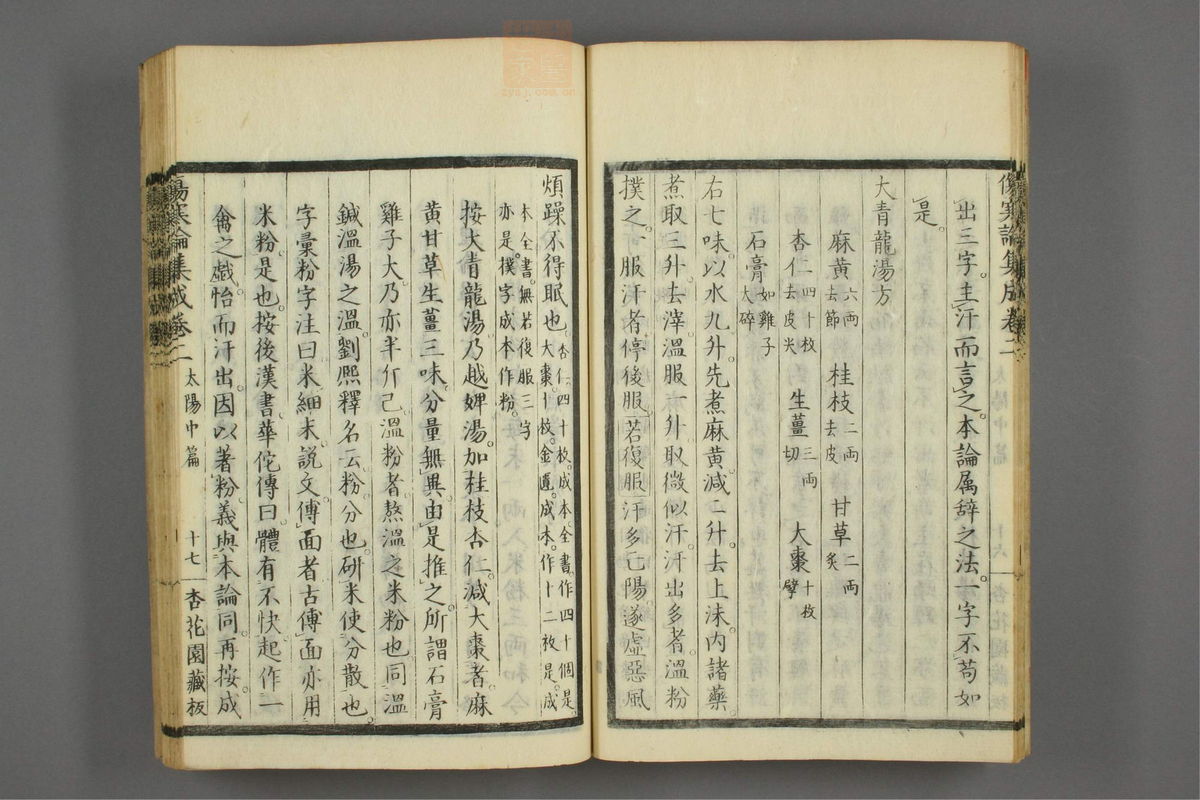 傷寒論集成卷二
出三字。主汗而言之。本論属辞之法。一字不苟如
是。
大青龍湯方
麻黄六両去節 桂枝二両去皮 甘草二両炙
杏仁四十枚去皮尖 生薑三両切 大棗十枚擘
石膏如雞子大碎
右七味。以水九升。先煮麻黄。減二升。去上沫。内諸藥。
煮取三升。去滓。温服一升。取微似汗。汗出多者。温粉
撲之。一服汗者停後服。若復服。汗多亡陽。遂虚。惡風
煩躁。不得眠也。杏仁。四十枚。成本全書。作四十個。是。大棗。十枚。金匱。成本。作十二枚。是。成
本全書。無若復服三字。亦是。撲字成本作粉。
按大青龍湯。乃越婢湯。加桂枝杏仁。減大棗者。麻
黄甘草生薑三味。分量無異。由是推之。所謂石膏
雞子大。乃亦半斤已。温粉者。熬温之米粉也。同温
鍼温湯之温。劉熙釋名云。粉分也。研米使分散也。
字彙粉字注曰。米細末。説文。傅面者。古傅面亦用
米粉。是也。按後漢書華佗傳曰。體有不快。起作一
禽之戯。怡而汗出。因以著粉。義與本論同。再按。成
傷寒論集成卷二 太陽中篇 十七 杏花園藏板